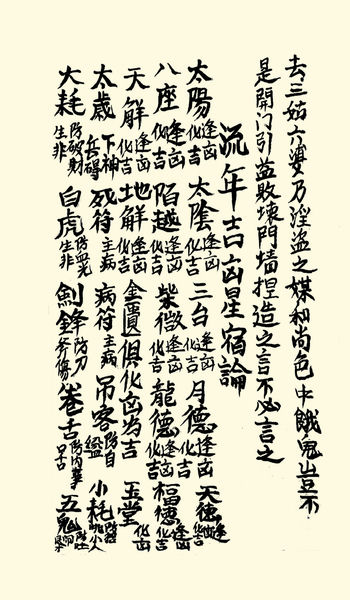 去三姑六婆乃淫盗之媒和尚色中餓鬼豈不
是開门引益敗壞門墙捏造之言不必言之
流年吉凶星宿論
太陽逢凶化吉 太陰逢凶化吉 三台逢凶化吉 月德逢凶化吉 天德逢凶化吉
八座逢凶化吉 陌越逢凶化吉 紫微逢凶化吉 龍德逢凶化吉 福德逢凶化吉
天解逢凶化吉 地解逢凶化吉 金匱俱化凶为吉 玉堂化凶
太歲下神兵碍 死符主病 病符主病 吊客防自縊 小耗防小人
大耗防破財生非 白虎防血光生非 劍鋒防刀斧傷 卷舌防口舌 五鬼防